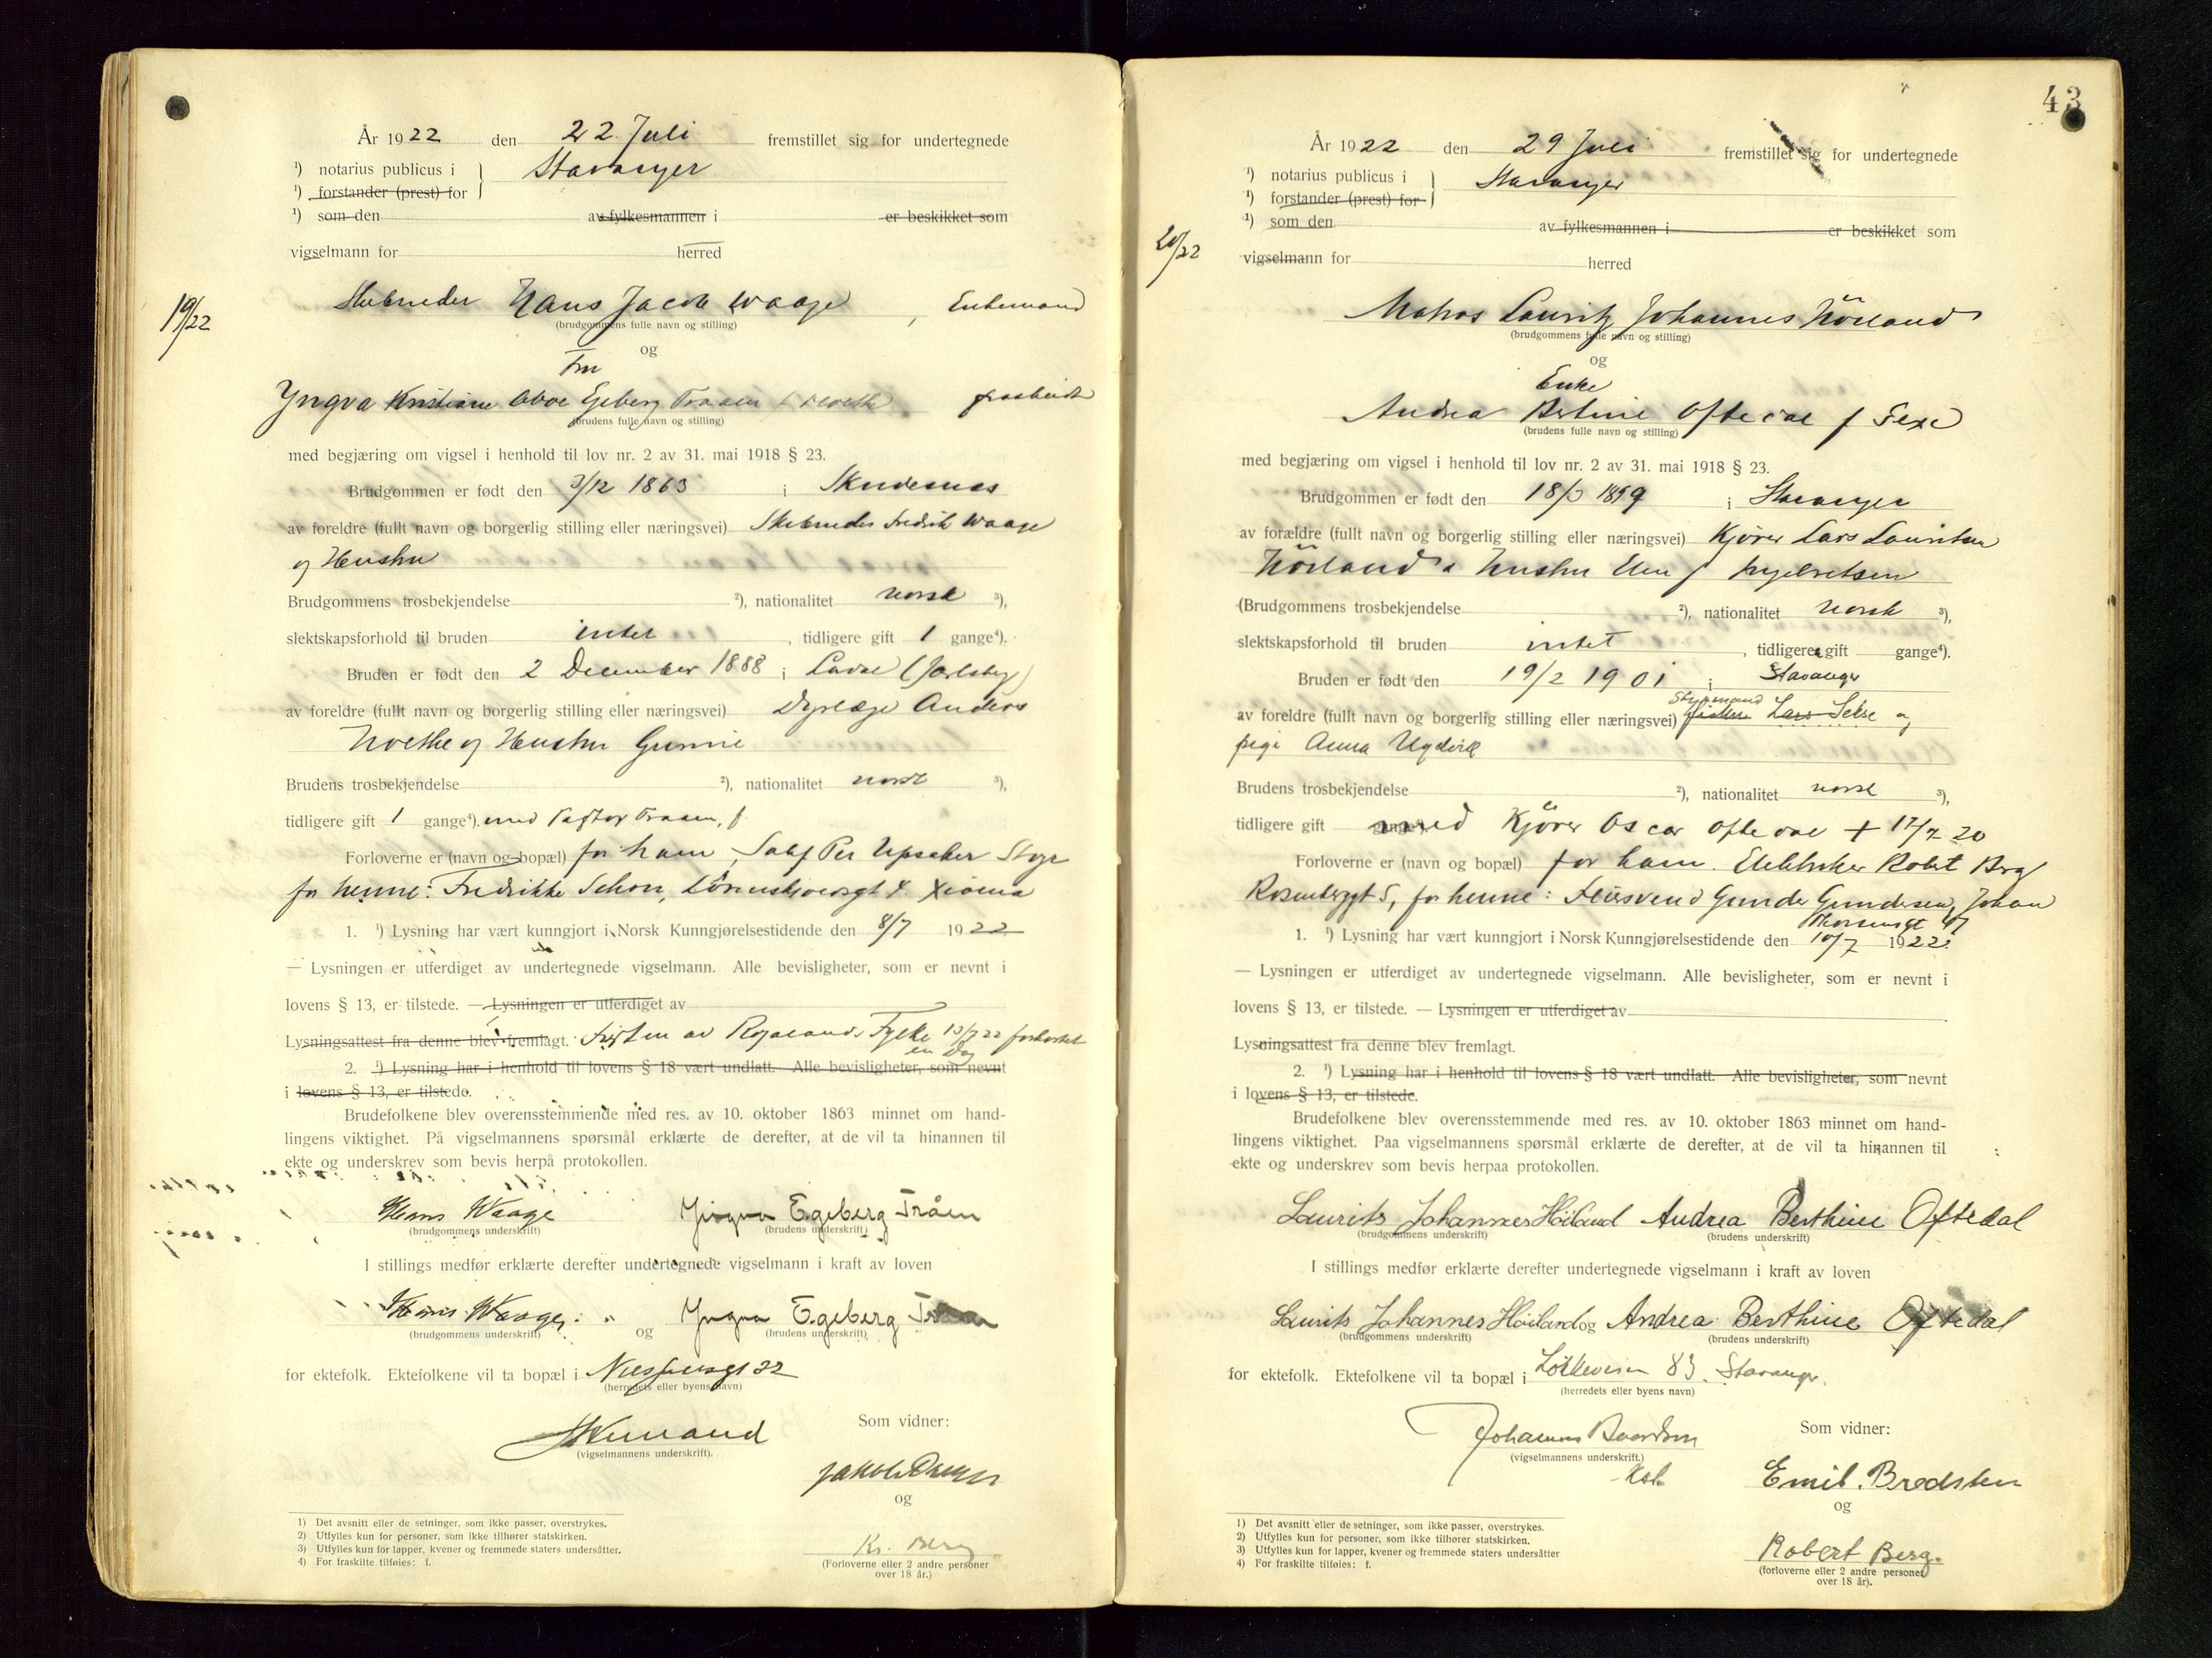 År 1922 den 22 Juli fremstillet sig for undertegnede
¹) notarius publicus i Stavanger
¹) forstander (prest) for
¹) som den av fylkesmannen i er beskikket som
vigselmann for herred
19/22
Hans Jacob Waage, Enkemand
(brudgommens fulle navn og stilling)
og
Fru
Yngva Kristiane Egeberg Traaen fraskilt
(brudens fulle navn og stilling)
med begjæring om vigsel i henhold til lov nr. 2 av 31. mai 1918 § 23.
Brudgommen er født den 3/12 1863 i Skudesnes
av foreldre (fullt navn og borgerlig stilling eller næringsvei) Fredrik Waage
og Hustru
Brudgommens trosbekjendelse ²), nationalitet norsk ³),
slektskapsforhold til bruden intet, tidligere gift 1 gange⁴).
Bruden er født den 2 December 1888 i Lardal (Jarlsberg)
av foreldre (fullt navn og borgerlig stilling eller næringsvei) Dyrlæge Anders
og Hustru Gunvie
Brudens trosbekjendelse ²), nationalitet norsk ³),
tidligere gift 1 gange⁴). med Pastor Traaen, f.
Forloverne er (navn og bopæl) for ham,
for henne: Fredrikke Schou,
1. ¹) Lysning har vært kunngjort i Norsk Kunngjørelsestidende den 8/7 1922
— Lysningen er utferdiget av undertegnede vigselmann. Alle bevisligheter, som er nevnt i
lovens § 13, er tilstede. — Lysningen er utferdiget av
Lysningsattest fra denne blev fremlagt. Fristen av Rogalands Fylke forkortet
en Dag
2. ¹) Lysning har i henhold til lovens § 18 vært undlatt. Alle bevisligheter, som nevnt
i lovens § 13, er tilstede.
Brudefolkene blev overensstemmende med res. av 10. oktober 1863 minnet om hand-
lingens viktighet. På vigselmannens spørsmål erklærte de derefter, at de vil ta hinannen til
ekte og underskrev som bevis herpå protokollen.
Hans Waage Yngva Egeberg Tråen
(brudgommens underskrift) (brudens underskrift)
I stillings medfør erklærte derefter undertegnede vigselmann i kraft av loven
Hans Waage og Yngva Egeberg Traaen
(brudgommens underskrift) (brudens underskrift)
for ektefolk. Ektefolkene vil ta bopæl i
(herredets eller byens navn)
(vigselmannens underskrift).
Som vidner:
og
Kr. Berg
(Forloverne eller 2 andre personer
over 18 år.)
1) Det avsnitt eller de setninger, som ikke passer, overstrykes.
2) Utfylles kun for personer, som ikke tilhører statskirken.
3) Utfylles kun for lapper, kvener og fremmede staters undersåtter.
4) For fraskilte tilføies: f.
43
År 1922 den 29 Juli fremstillet sig for undertegnede
¹) notarius publicus i Stavanger
¹) forstander (prest) for
¹) som den av fylkesmannen i er beskikket som
vigselmann for herred
20/22
Matros Lauritz Johannes Höiland
(brudgommens fulle navn og stilling)
og
Enke
Andrea Bertine Oftedal f Sexe
(brudens fulle navn og stilling)
med begjæring om vigsel i henhold til lov nr. 2 av 31. mai 1918 § 23.
Brudgommen er født den 1899 i Stavanger
av forældre (fullt navn og borgerlig stilling eller næringsvei) Kjører Lars Lauritsen
Höiland & hustru Elen f Ingebretsen
(Brudgommens trosbekjendelse ²), nationalitet norsk ³),
slektskapsforhold til bruden intet, tidligere gift gange⁴).
Bruden er født den 19/2 1901 i Stavanger
Styrmand
av foreldre (fullt navn og borgerlig stilling eller næringsvei) Lars Sekse og
pige Anna
Brudens trosbekjendelse ²), nationalitet norsk ³),
tidligere gift med Kjører Oscar Oftedal + 17/7 20
Forloverne er (navn og bopæl) for ham. Robert Berg
Rosenberggt 5, for henne: Gunder Gundersen, Johan
Thorsensgt
1. ¹) Lysning har vært kunngjort i Norsk Kunngjørelsestidende den 10/7 1922.
— Lysningen er utferdiget av undertegnede vigselmann. Alle bevisligheter, som er nevnt i
lovens § 13, er tilstede. — Lysningen er utferdiget av
Lysningsattest fra denne blev fremlagt.
2. ¹) Lysning har i henhold til lovens § 18 vært undlatt. Alle bevisligheter, som nevnt
i lovens § 13, er tilstede.
Brudefolkene blev overensstemmende med res. av 10. oktober 1863 minnet om hand-
lingens viktighet. Paa vigselmannens spørsmål erklærte de derefter, at de vil ta hinannen til
ekte og underskrev som bevis herpaa protokollen.
Laurits Johannes Høiland Andrea Berthine Oftedal
(brudgommens underskrift) (brudens underskrift)
I stillings medfør erklærte derefter undertegnede vigselmann i kraft av loven
Laurits Johannes Høiland og Andrea Berthine Oftedal
(brudgommens underskrift) (brudens underskrift)
for ektefolk. Ektefolkene vil ta bopæl i Løkkeveien 83. Stavanger.
(herredets eller byens navn)
Johannes
(vigselmannens underskrift.)
Som vidner:
Emil. Bredsten
og
Robert Berg.
(forloverne eller 2 andre personer
over 18 år).
1) Det avsnitt eller de setninger, som ikke passer, overstrykes.
2) Utfylles kun for personer, som ikke tilhører statskirken.
3) Utfylles kun for lapper, kvener og fremmede staters undersåtter
4) For fraskilte tilføies: f.